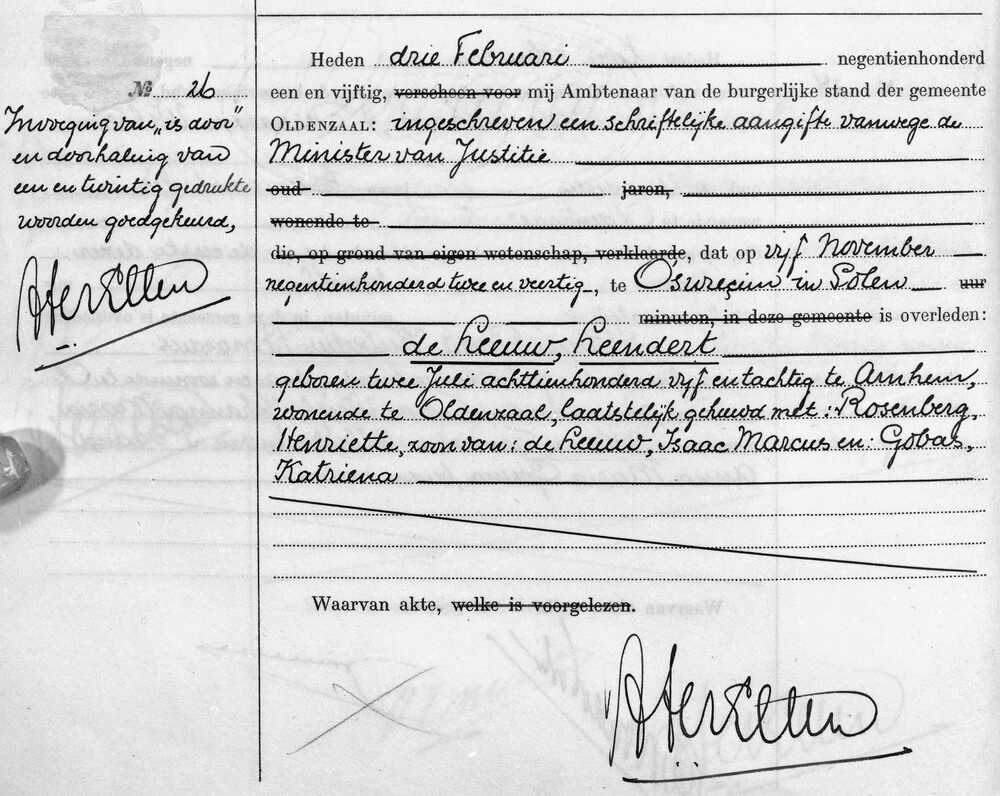 № 26
Invoeging van „is door"
en doorhaling van
een en twintig gedrukte
woorden goedgekeurd,
Heden drie Februari negentienhonderd
een en vijftig, verscheen voor mij Ambtenaar van de burgerlijke stand der gemeente
OLDENZAAL: ingeschreven een schriftelijke aangifte vanwege de
Minister van Justitie
oud jaren,
wonende te
die, op grond van eigen wetenschap, verklaarde, dat op vijf November
negentienhonderd twee en veertig, te Oswięcim in Polen uur
minuten, in deze gemeente is overleden:
de Leeuw, Leendert
geboren twee Juli achttienhonderd vijf en tachtig te Arnhem,
wonende te Oldenzaal, laatstelijk gehuwd met: Rosenberg,
Henriette, zoon van: de Leeuw, Isaac Marcus en: Gobas,
Katriena
Waarvan akte, welke is voorgelezen.